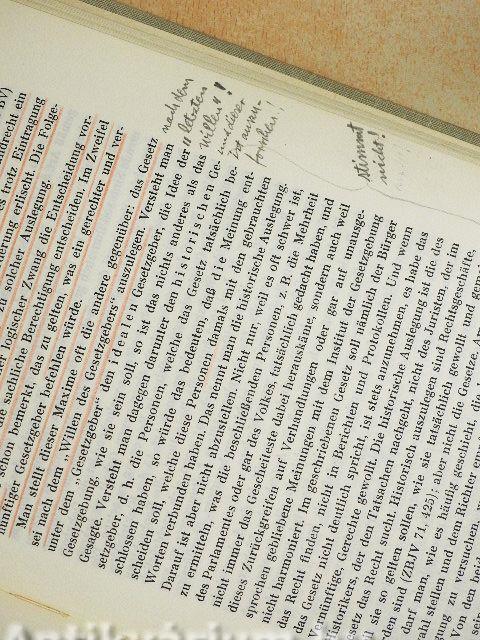 BV)
ndrecht ein
es trotz Eintragung
erung erlischt. Die Folge-
zu solcher Auslegung.
her logischer Zwang die Entscheidung vor-
ie sachliche Berechtigung entscheiden. Im Zweifel
schon bemerkt, das zu gelten, was ein gerechter und ver-
nünftiger Gesetzgeber befehlen würde.
Man stellt dieser Maxime oft die andere gegenüber: das Gesetz
sei nach dem „Willen des Gesetzgebers" auszulegen. Versteht man
unter dem „Gesetzgeber" den idealen Gesetzgeber, die Idee der
Gesetzgebung, wie sie sein soll, so ist das nichts anderes als das
Gesagte. Versteht man dagegen darunter den historischen Ge-
setzgeber, d. h. die Personen, welche das Gesetz tatsächlich be-
schlossen haben, so würde das bedeuten, daß die Meinung ent-
scheiden soll, welche diese Personen damals mit den gebrauchten
Worten verbunden haben. Das nennt man die historische Auslegung.
Darauf ist aber nicht abzustellen. Nicht nur, weil es oft schwer ist,
zu ermitteln, was die beschließenden Personen, z. B. die Mehrheit
des Parlamentes oder gar des Volkes, tatsächlich gedacht haben, und
nicht immer das Gescheiteste dabei herauskäme, sondern auch weil
dieses Zurückgreifen auf Verhandlungen oder gar auf unausge-
sprochen gebliebene Meinungen mit dem Institut der Gesetzgebung
nicht harmoniert. Im geschriebenen Gesetz soll nämlich der Bürger
das Recht finden, nicht in Berichten und Protokollen. Und wenn
das Gesetz nicht deutlich spricht, ist stets anzunehmen, es habe das
ernünftige, Gerechte gewollt. Die historische Auslegung ist die des
istorikers, der den Tatsachen nachgeht, nicht des Juristen, der im
setz das Recht sucht. Historisch auszulegen sind Rechtsgeschäfte,
sie so gelten sollen, wie sie tatsächlich gewollt und gemei
den sind (ZBJV 71, 425); aber nicht die Gesetze. A
darf man, wie es häufig geschieht, die
hl stellen und dem Richter em
g zu versuchen, w
on den beid
sein
nach dem
„letzten
Willen"!
ist
forschen!
stimmt
nicht!